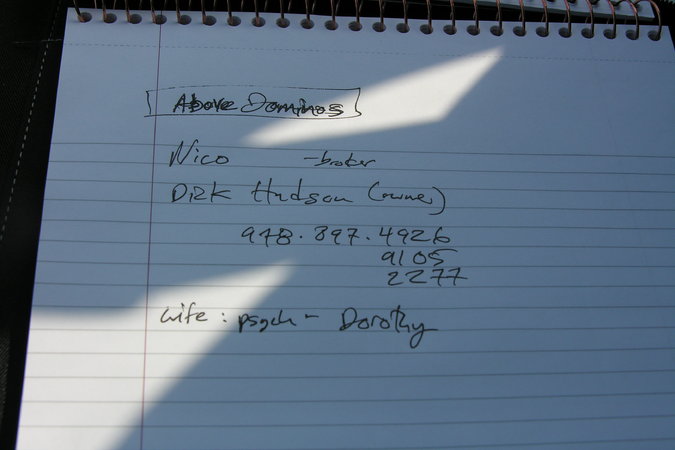 Above Dominos
Nico -broker
Dirk Hudson (owner)
978.897.4926
9105
2277
wife: psych - Dorothy